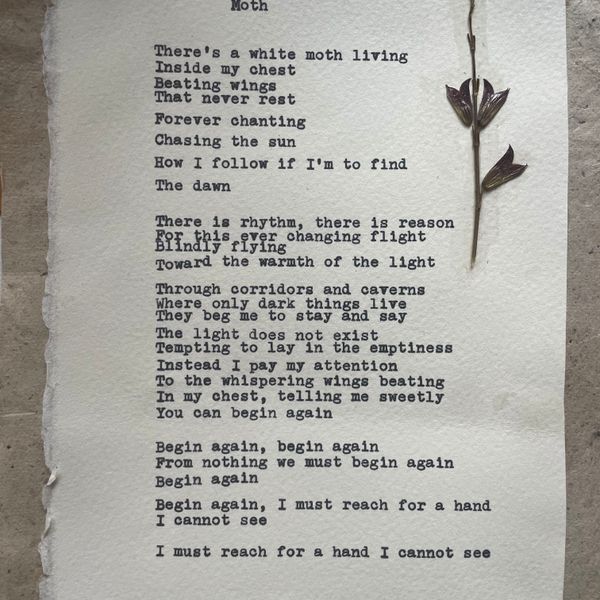 Moth
There's a white moth living
Inside my chest
Beating wings
That never rest
Forever chanting
Chasing the sun
How I follow if I'm to find
The dawn
There is rhythm, there is reason
For this ever changing flight
Blindly flying
Toward the warmth of the light
Through corridors and caverns
Where only dark things live
They beg me to stay and say
The light does not exist
Tempting to lay in the emptiness
Instead I pay my attention
To the whispering wings beating
In my chest, telling me sweetly
You can begin again
Begin again, begin again
From nothing we must begin again
Begin again
Begin again, I must reach for a hand
I cannot see
I must reach for a hand I cannot see